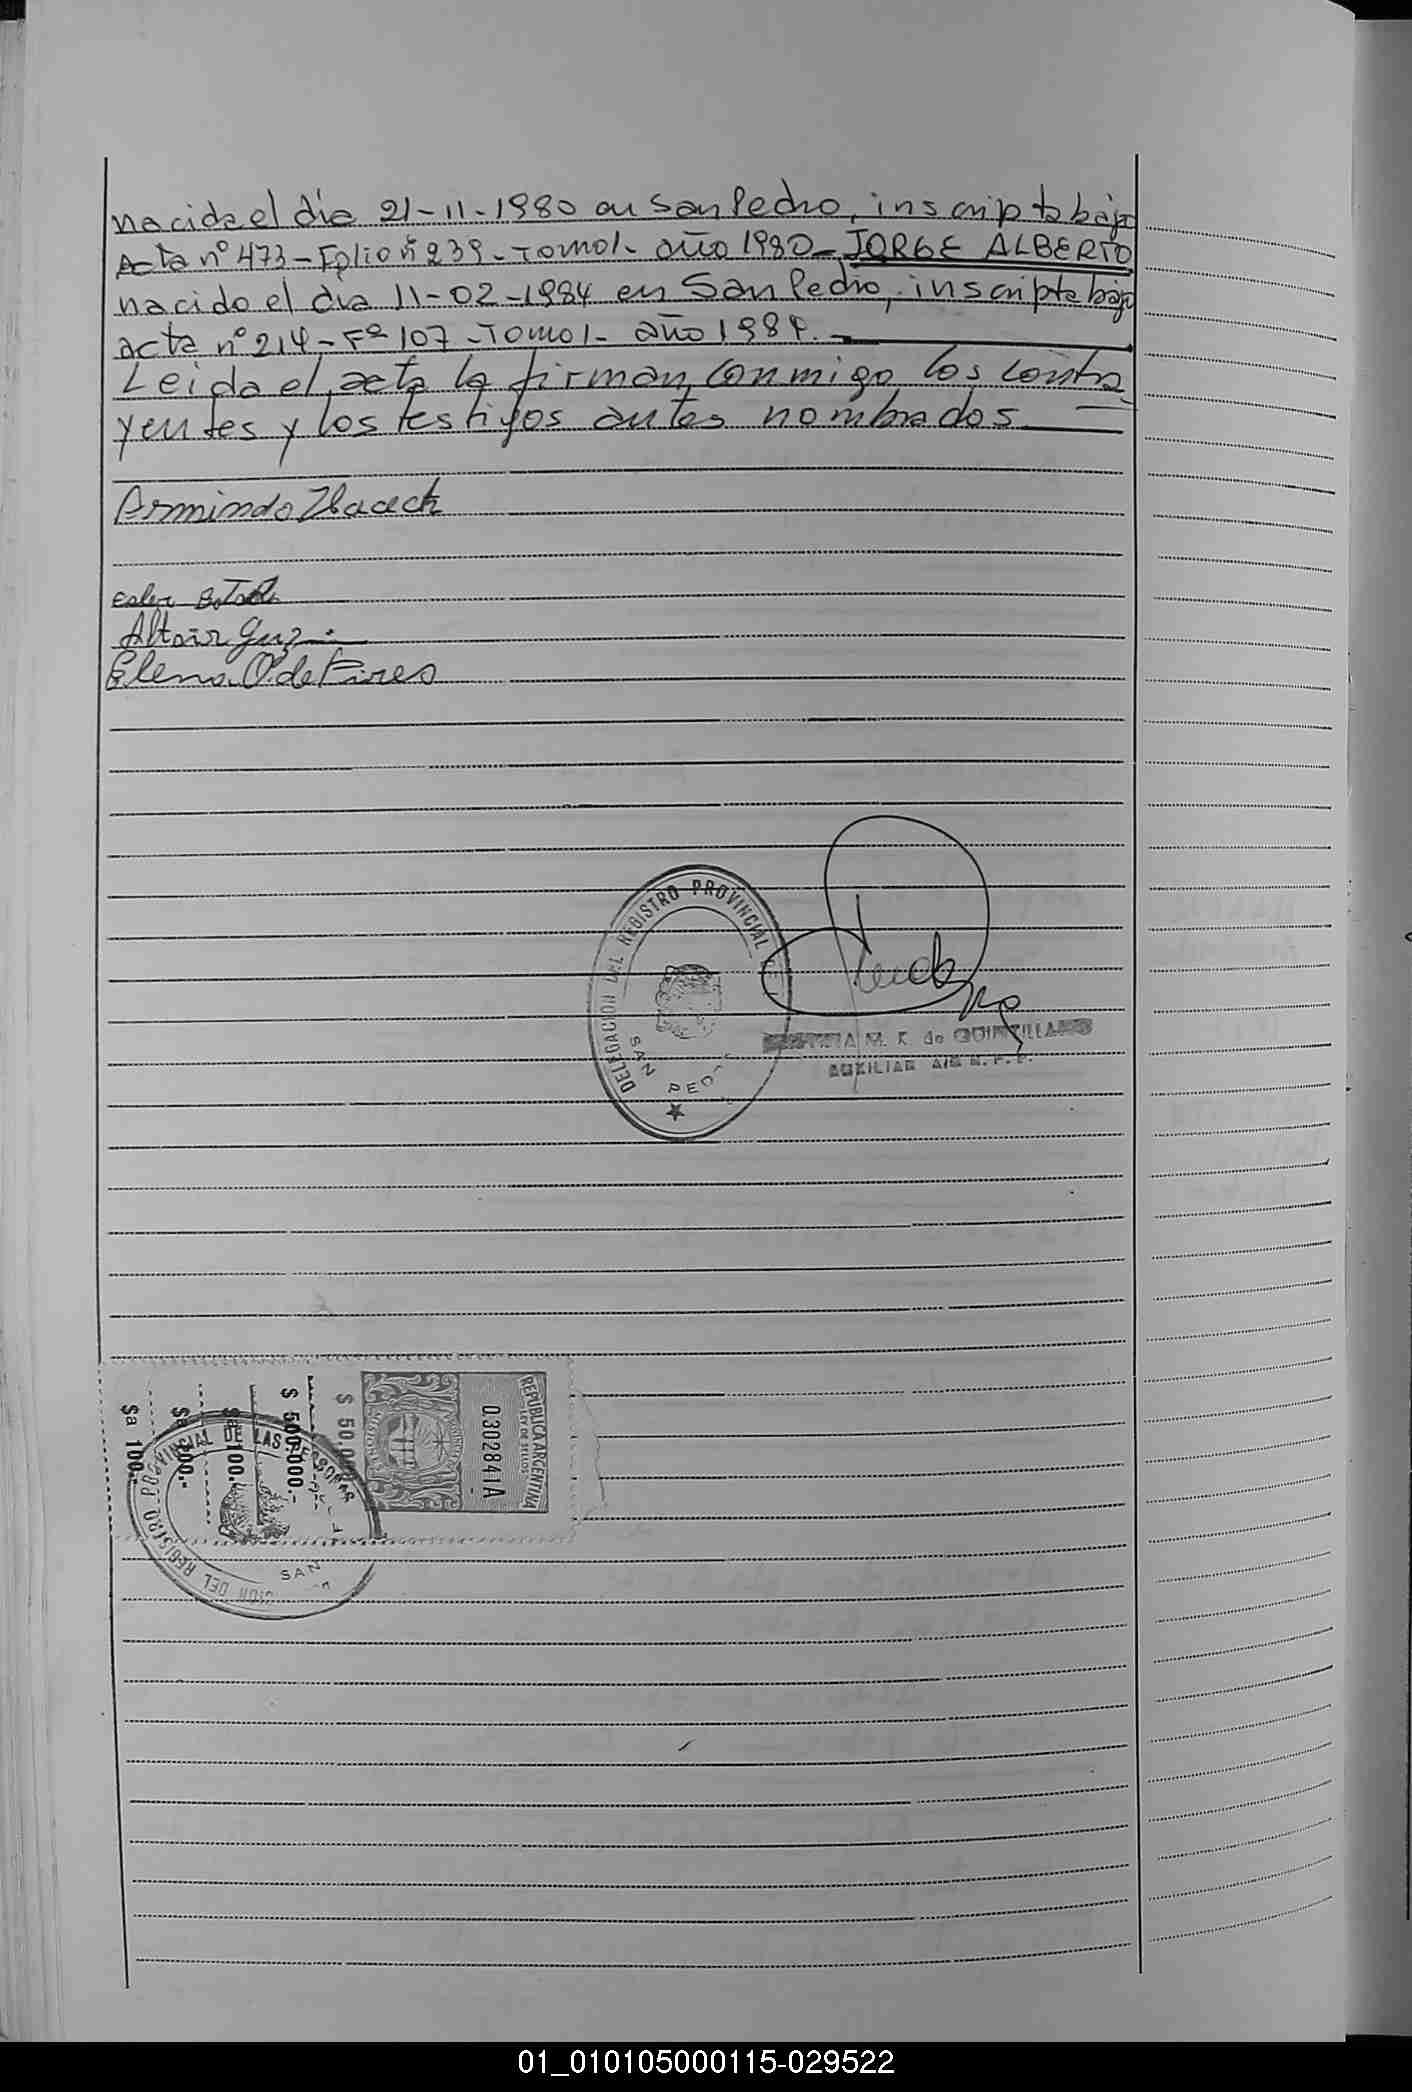 nacida el día 21-11-1980 en San Pedro, inscripta bajo
Acta nº 473-Folio nº 239-Tomo1- año 1980-JORGE ALBERTO
nacido el día 11-02-1984 en San Pedro, inscripto bajo
acta nº 214-Fº 107-Tomo1- año 1984.-
Leida el acta la firman conmigo los contra
yentes y los testigos antes nombrados
Armindo
Altair
Elena O. de Pires
DELEGACION DEL REGISTRO PROVINCIAL DE
SAN PEDRO
M. K. de QUINTILLANO
AUXILIAR
REPUBLICA ARGENTINA
LEY DE SELLOS
0302841A
$ 50.000
$ 500.000.-
$a 100.-
$a 100.-
REGISTRO PROVINCIAL DE LAS PERSONAS
SAN
01_010105000115-029522